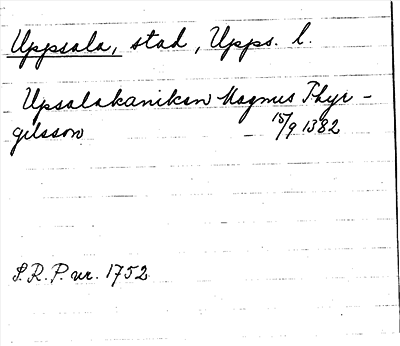 Uppsala, stad, Upps. l.
Upsalakaniken Magnus Thyr-
gilsson - 15/9 1382
S.R.P. nr. 1752